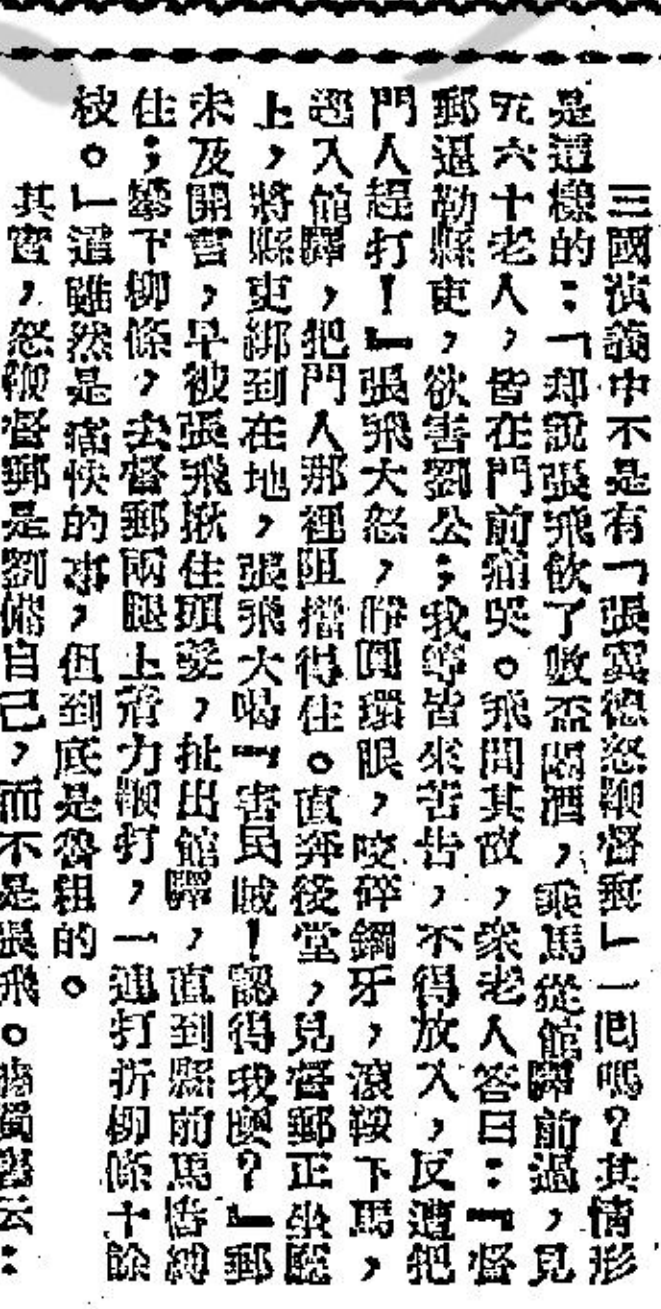 三國演義中不是有「張翼德怒鞭督郵」一回嗎？其情形
是這樣的：「却說張飛飲了數盃悶酒，乘馬從館驛前過，見
五六十老人，皆在門前痛哭。飛問其故，衆老人答曰：『督
郵逼勒縣吏，欲害劉公；我等皆來苦告，不得放入，反遭把
門人趕打！』張飛大怒，睜圓環眼，咬碎鋼牙，滾鞍下馬，
逕入館驛，把門人那裡阻擋得住。直奔後堂，見督郵正坐廳
上，將縣吏綁到在地，張飛大喝『害民賊！認得我麼？』郵
未及開言，早被張飛揪住頭髮，扯出館驛，直到縣前馬樁縛
住；攀下柳條，去督郵兩腿上着力鞭打，一連打折柳條十餘
枝。」這雖然是痛快的事，但到底是魯粗的。
其實，怒鞭督郵是劉備自己，而不是張飛。按蜀書云：